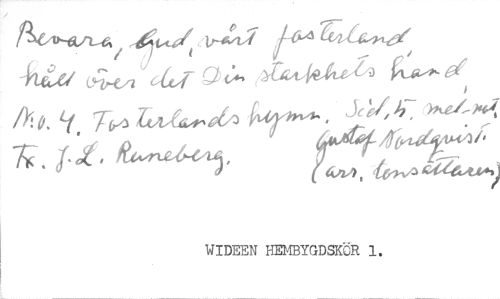 Bevara, Gud, vårt fosterland,
håll över det Din starkhets hand,
N:o. 4. Fosterlandshymn. Sid. 5. mel-not.
Tx. J. L. Runeberg. Gustaf Nordqvist.
(arr. tonsättaren)
WIDEEN HEMBYGDSKÖR 1.